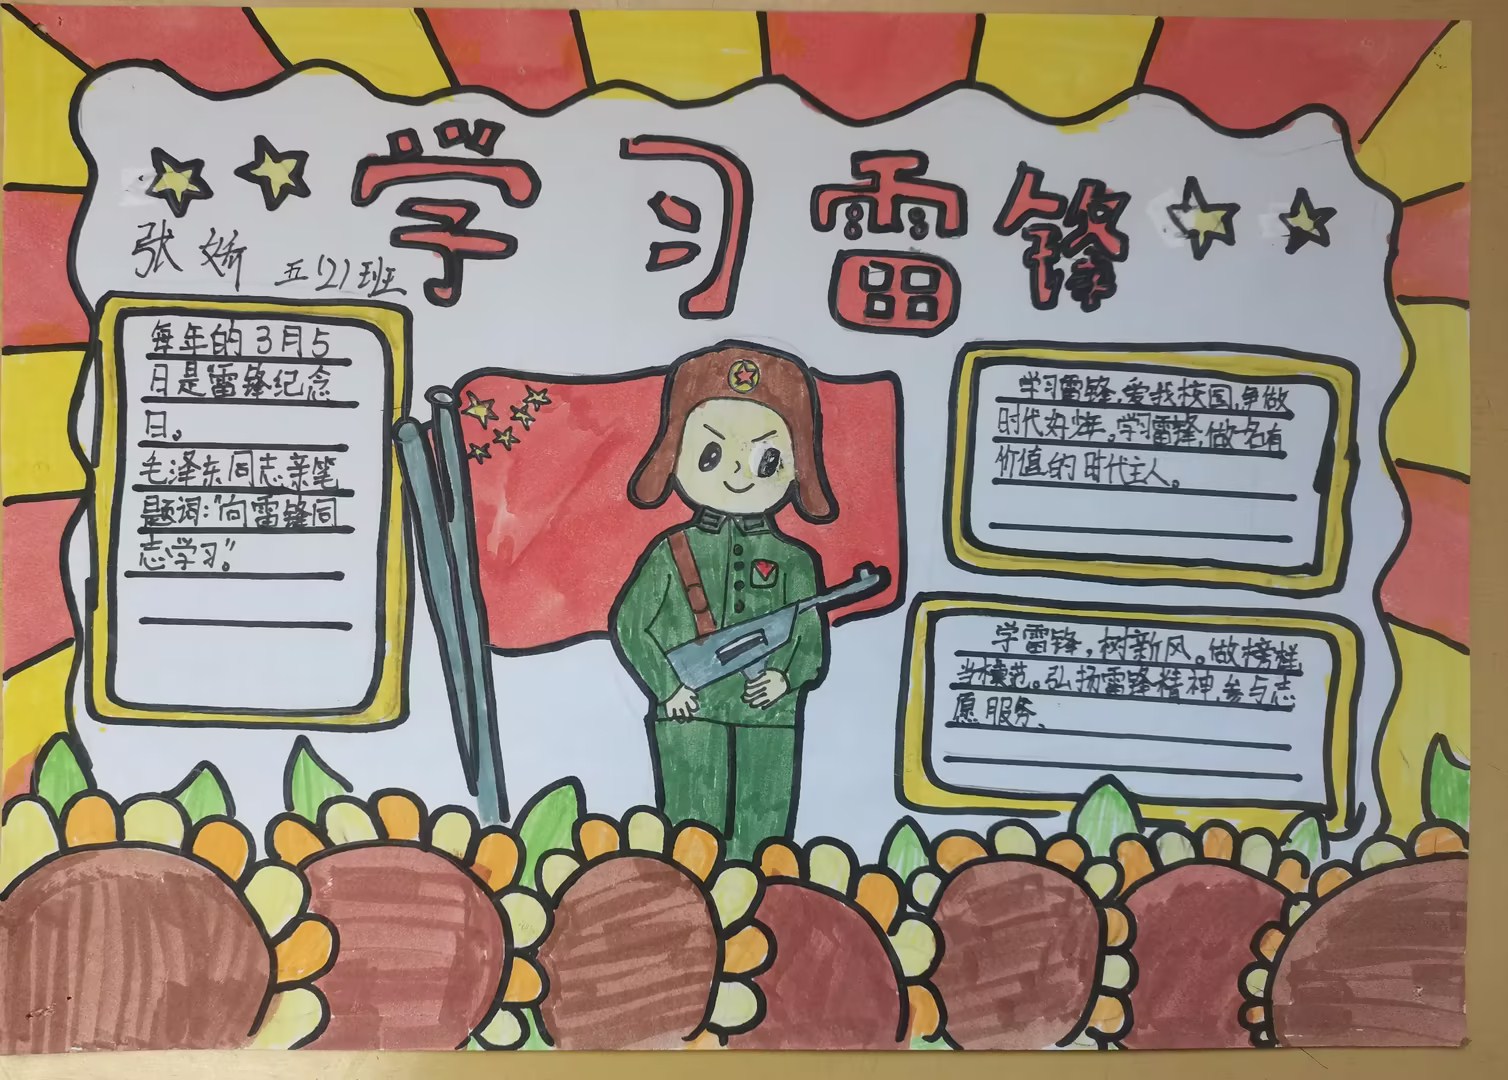 学习雷锋
张娇 五(2)班
每年的3月5
日是雷锋纪念
日。
毛泽东同志亲笔
题词:“向雷锋同
志学习”。
学习雷锋,爱我校园,争做
时代好少年。学习雷锋,做一名有
价值的时代主人。
学雷锋,树新风。做榜样
当模范。弘扬雷锋精神,参与志
愿服务、